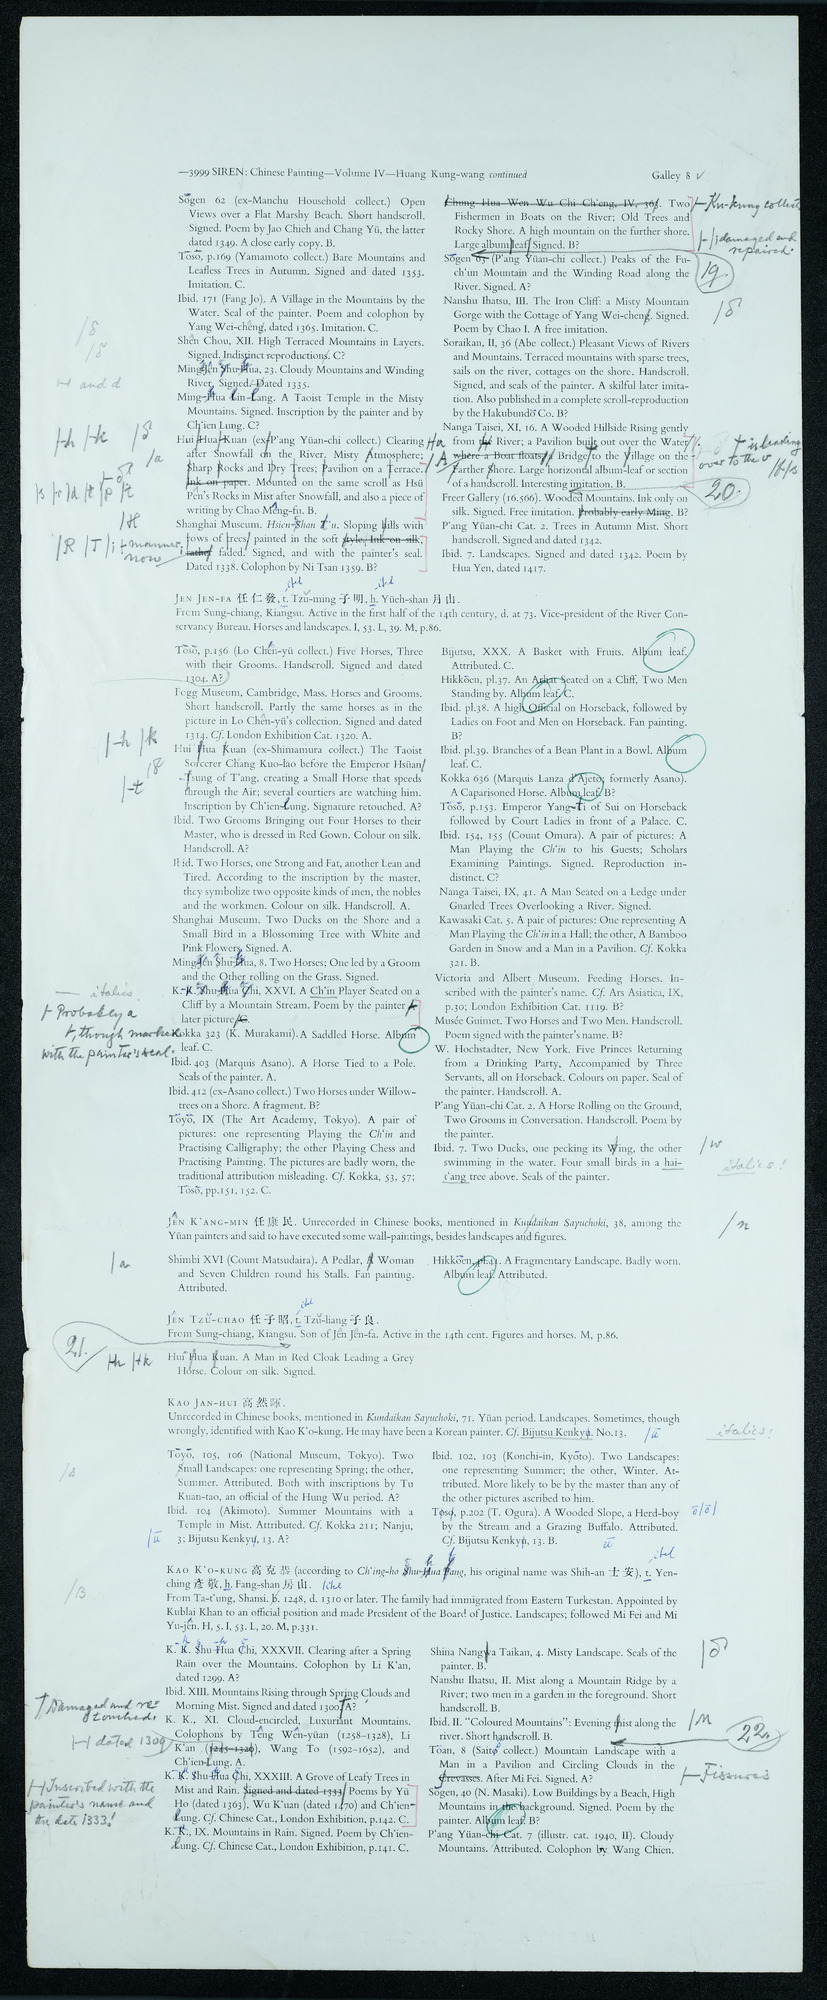 —3999 SIREN: Chinese Painting—Volume IV—Huang Kung-wang continued
Galley 8
Sōgen 62 (ex-Manchu Household collect.) Open
Views over a Flat Marshy Beach. Short handscroll.
Signed. Poem by Jao Chieh and Chang Yü, the latter
dated 1349. A close early copy. B.
Tōsō, p.169 (Yamamoto collect.) Bare Mountains and
Leafless Trees in Autumn. Signed and dated 1353.
Imitation. C.
Ibid. 171 (Fang Jo). A Village in the Mountains by the
Water. Seal of the painter. Poem and colophon by
Yang Wei-chêng, dated 1365. Imitation. C.
Shên Chou, XII. High Terraced Mountains in Layers.
Signed. Indistinct reproductions. C?
Ming Jen Shu-Hua, 23. Cloudy Mountains and Winding
River. Signed. Dated 1335.
Ming-Hua Lin-Lang. A Taoist Temple in the Misty
Mountains. Signed. Inscription by the painter and by
Ch'ien Lung. C?
Hui Hua Kuan (ex-P'ang Yüan-chi collect.) Clearing
after Snowfall on the River, Misty Atmosphere;
Sharp Rocks and Dry Trees; Pavilion on a Terrace.
Ink on paper. Mounted on the same scroll as Hsü
Pên's Rocks in Mist after Snowfall, and also a piece of
writing by Chao Mêng-fu. B.
Shanghai Museum. Hsien-Shan T'u. Sloping hills with
rows of trees painted in the soft style, Ink on silk,
rather faded. Signed, and with the painter's seal.
Dated 1338. Colophon by Ni Tsan 1359. B?
Chung Hua Wen Wu Chi Ch'eng, IV, 36. Two
Fishermen in Boats on the River; Old Trees and
Rocky Shore. A high mountain on the further shore.
Large album leaf Signed. B?
Sōgen 63 (P'ang Yüan-chi collect.) Peaks of the Fu-
ch'un Mountain and the Winding Road along the
River. Signed. A?
Nanshu Ihatsu, III. The Iron Cliff: a Misty Mountain
Gorge with the Cottage of Yang Wei-cheng. Signed.
Poem by Chao I. A free imitation.
Soraikan, II, 36 (Abe collect.) Pleasant Views of Rivers
and Mountains. Terraced mountains with sparse trees,
sails on the river, cottages on the shore. Handscroll.
Signed, and seals of the painter. A skilful later imita-
tion. Also published in a complete scroll-reproduction
by the Hakubundō Co. B?
Nanga Taisei, XI, 16. A Wooded Hillside Rising gently
from River; a Pavilion built out over the Water
where a Boat floats; Bridge to the Village on the
Farther Shore. Large horizontal album-leaf or section
of a handscroll. Interesting imitation. B.
Freer Gallery (16.566). Wooded Mountains. Ink only on
silk. Signed. Free imitation. Probably early Ming. B?
P'ang Yüan-chi Cat. 2. Trees in Autumn Mist. Short
handscroll. Signed and dated 1342.
Ibid. 7. Landscapes. Signed and dated 1342. Poem by
Hua Yen, dated 1417.
Ku-kung collect
damaged and
repaired.
19
and d
Ha
is leading
over to the
20.
manner,
now
JEN JEN-FA 任仁發, t. Tzŭ-ming 子明, h. Yüeh-shan 月山.
From Sung-chiang, Kiangsu. Active in the first half of the 14th century, d. at 73. Vice-president of the River Con-
servancy Bureau. Horses and landscapes. I, 53. L, 39. M, p.86.
Tōsō, p.156 (Lo Chên-yü collect.) Five Horses, Three
with their Grooms. Handscroll. Signed and dated
1304. A?
Fogg Museum, Cambridge, Mass. Horses and Grooms.
Short handscroll. Partly the same horses as in the
picture in Lo Chên-yü's collection. Signed and dated
1314. Cf. London Exhibition Cat. 1320. A.
Hui Hua Kuan (ex-Shimamura collect.) The Taoist
Sorcerer Chang Kuo-lao before the Emperor Hsüan
Tsung of T'ang, creating a Small Horse that speeds
through the Air; several courtiers are watching him.
Inscription by Ch'ien-Lung. Signature retouched. A?
Ibid. Two Grooms Bringing out Four Horses to their
Master, who is dressed in Red Gown. Colour on silk.
Handscroll. A?
Ibid. Two Horses, one Strong and Fat, another Lean and
Tired. According to the inscription by the master,
they symbolize two opposite kinds of men, the nobles
and the workmen. Colour on silk. Handscroll. A.
Shanghai Museum. Two Ducks on the Shore and a
Small Bird in a Blossoming Tree with White and
Pink Flowers. Signed. A.
Ming Jên Shu-Hua, 8. Two Horses; One led by a Groom
and the Other rolling on the Grass. Signed.
K.-K. Shu-Hua Chi, XXVI. A Ch'in Player Seated on a
Cliff by a Mountain Stream. Poem by the painter
later picture
Kokka 323 (K. Murakami). A Saddled Horse. Album
leaf. C.
Ibid. 403 (Marquis Asano). A Horse Tied to a Pole.
Seals of the painter. A.
Ibid. 412 (ex-Asano collect.) Two Horses under Willow-
trees on a Shore. A fragment. B?
Tōyō, IX (The Art Academy, Tokyo). A pair of
pictures: one representing Playing the Ch'in and
Practising Calligraphy; the other Playing Chess and
Practising Painting. The pictures are badly worn, the
traditional attribution misleading. Cf. Kokka, 53, 57;
Tōsō, pp.151, 152. C.
Bijutsu, XXX. A Basket with Fruits. Album leaf.
Attributed. C.
Hikkōen, pl.37. An Arhat Seated on a Cliff, Two Men
Standing by. Album leaf. C.
Ibid. pl.38. A high Official on Horseback, followed by
Ladies on Foot and Men on Horseback. Fan painting.
B?
Ibid. pl.39. Branches of a Bean Plant in a Bowl. Album
leaf. C.
Kokka 636 (Marquis Lanza d'Ajeto, formerly Asano).
A Caparisoned Horse. Album leaf. B?
Tōsō, p.153. Emperor Yang-Ti of Sui on Horseback
followed by Court Ladies in front of a Palace. C.
Ibid. 154, 155 (Count Omura). A pair of pictures: A
Man Playing the Ch'in to his Guests; Scholars
Examining Paintings. Signed. Reproduction in-
distinct. C?
Nanga Taisei, IX, 41. A Man Seated on a Ledge under
Gnarled Trees Overlooking a River. Signed.
Kawasaki Cat. 5. A pair of pictures: One representing A
Man Playing the Ch'in in a Hall; the other, A Bamboo
Garden in Snow and a Man in a Pavilion. Cf. Kokka
321. B.
Victoria and Albert Museum. Feeding Horses. In-
scribed with the painter's name. Cf. Ars Asiatica, IX,
p.30; London Exhibition Cat. 1119. B?
Musée Guimet. Two Horses and Two Men. Handscroll.
Poem signed with the painter's name. B?
W. Hochstadter, New York. Five Princes Returning
from a Drinking Party, Accompanied by Three
Servants, all on Horseback. Colours on paper. Seal of
the painter. Handscroll. A.
P'ang Yüan-chi Cat. 2. A Horse Rolling on the Ground,
Two Grooms in Conversation. Handscroll. Poem by
the painter.
Ibid. 7. Two Ducks, one pecking its Wing, the other
swimming in the water. Four small birds in a hai-
t'ang tree above. Seals of the painter.
italics
Probably a
, though marked
with the painter's seal.
italics!
JÊN K'ANG-MIN 任康民. Unrecorded in Chinese books, mentioned in Kundaikan Sayuchoki, 38, among the
Yüan painters and said to have executed some wall-paintings, besides landscapes and figures.
Shimbi XVI (Count Matsudaira). A Pedlar, A Woman
and Seven Children round his Stalls. Fan painting.
Attributed.
Hikkōen, pl.41. A Fragmentary Landscape. Badly worn.
Album leaf. Attributed.
JÊN TZŬ-CHAO 任子昭, t. Tzŭ-liang 子良.
From Sung-chiang, Kiangsu. Son of Jên Jên-fa. Active in the 14th cent. Figures and horses. M, p.86.
21.
Hui Hua Kuan. A Man in Red Cloak Leading a Grey
Horse. Colour on silk. Signed.
KAO JAN-HUI 高然暉.
Unrecorded in Chinese books, mentioned in Kundaikan Sayuchoki, 71. Yüan period. Landscapes. Sometimes, though
wrongly, identified with Kao K'o-kung. He may have been a Korean painter. Cf. Bijutsu Kenkyu, No.13.
italics!
Tōyō, 105, 106 (National Museum, Tokyo). Two
Small Landscapes: one representing Spring; the other,
Summer. Attributed. Both with inscriptions by Tu
Kuan-tao, an official of the Hung Wu period. A?
Ibid. 104 (Akimoto). Summer Mountains with a
Temple in Mist. Attributed. Cf. Kokka 211; Nanju,
3; Bijutsu Kenkyu, 13. A?
Ibid. 102, 103 (Konchi-in, Kyōto). Two Landscapes:
one representing Summer; the other, Winter. At-
tributed. More likely to be by the master than any of
the other pictures ascribed to him.
Toso, p.202 (T. Ogura). A Wooded Slope, a Herd-boy
by the Stream and a Grazing Buffalo. Attributed.
Cf. Bijutsu Kenkyu, 13. B.
KAO K'O-KUNG 高克恭 (according to Ch'ing-ho Shu-Hua Fang, his original name was Shih-an 士安), t. Yen-
ching 彥敬, h. Fang-shan 房山.
From Ta-t'ung, Shansi. b. 1248, d. 1310 or later. The family had immigrated from Eastern Turkestan. Appointed by
Kublai Khan to an official position and made President of the Board of Justice. Landscapes; followed Mi Fei and Mi
Yu-jên. H, 5. I, 53. L, 20. M, p.331.
K. K. Shu Hua Chi, XXXVII. Clearing after a Spring
Rain over the Mountains. Colophon by Li K'an,
dated 1299. A?
Ibid. XIII. Mountains Rising through Spring Clouds and
Morning Mist. Signed and dated 1300 A?
K. K., XI. Cloud-encircled, Luxuriant Mountains.
Colophons by Têng Wên-yüan (1258–1328), Li
K'an (1245-1320), Wang To (1592–1652), and
Ch'ien-Lung. A.
K. K. Shu-Hua Chi, XXXIII. A Grove of Leafy Trees in
Mist and Rain. Signed and dated 1333 Poems by Yü
Ho (dated 1363), Wu K'uan (dated 1470) and Ch'ien-
Lung. Cf. Chinese Cat., London Exhibition, p.142. C.
K. K., IX. Mountains in Rain. Signed. Poem by Ch'ien-
Lung. Cf. Chinese Cat., London Exhibition, p.141. C.
Shina Nangwa Taikan, 4. Misty Landscape. Seals of the
painter. B.
Nanshu Ihatsu, II. Mist along a Mountain Ridge by a
River; two men in a garden in the foreground. Short
handscroll. B.
Ibid. II. "Coloured Mountains": Evening mist along the
river. Short handscroll. B.
Tōan, 8 (Saitō collect.) Mountain Landscape with a
Man in a Pavilion and Circling Clouds in the
Crevasses. After Mi Fei. Signed. A?
Sōgen, 40 (N. Masaki). Low Buildings by a Beach, High
Mountains in the background. Signed. Poem by the
painter. Album leaf. B?
P'ang Yüan-chi Cat. 7 (illustr. cat. 1940, II). Cloudy
Mountains. Attributed. Colophon by Wang Chien.
Damaged and re-
touched.
dated 1309
Inscribed with the
painter's name and
the date 1333!
22.
Fissures